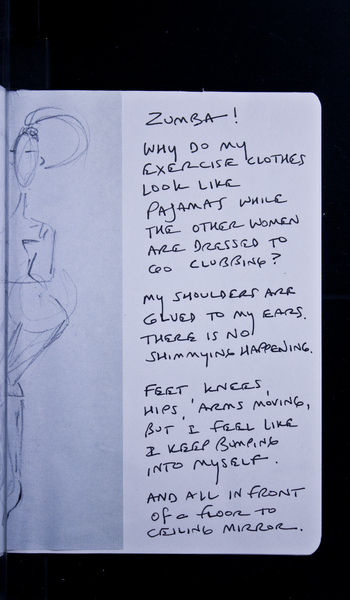 ZUMBA!
WHY DO MY
EXERCISE CLOTHES
LOOK LIKE
PAJAMAS WHILE
THE OTHER WOMEN
ARE DRESSED TO
GO CLUBBING?
MY SHOULDERS ARE
GLUED TO MY EARS.
THERE IS NO
SHIMMYING HAPPENING.
FEET, KNEES,
HIPS, ARMS MOVING,
BUT I FEEL LIKE
I KEEP BUMPING
INTO MYSELF.
AND ALL IN FRONT
OF a FLOOR TO
CEILING MIRROR.